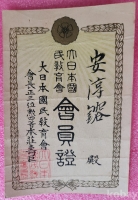 安淳鎔 殿
大日本國
民敎育會
會員證
大日本國民敎育會
會長正二位勲一等本莊